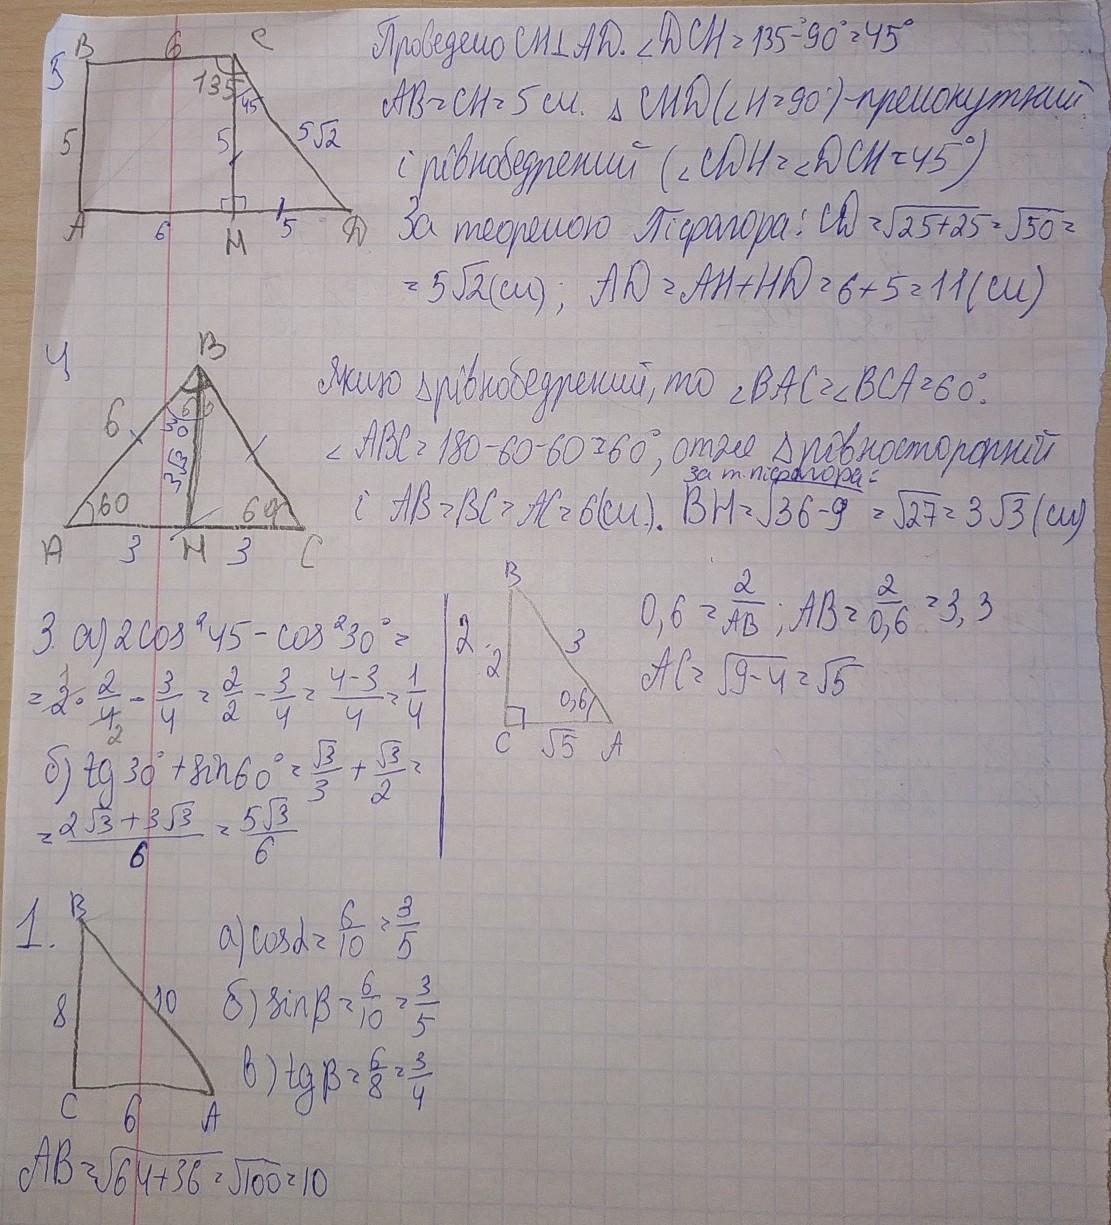 5
B 6 C
135° 45
5 5 5√2
A 6 H 5 D
Проведемо CH⊥AD. ∠DCH=135-90°=45°
AB=CH=5 см. △ CHD(∠H=90°)-прямокутний
і рівнобедрений (∠CDH=∠DCH=45°)
За теоремою Піфагора: CD=√25+25=√50=
=5√2(см); AD=AH+HD=6+5=11(см)
4
B
6
3√3
60 60
A 3 H 3 C
Якщо △рівнобедрений, то ∠BAC=∠BCA=60°.
∠ABC=180-60-60=60°, отже △рівносторонній
за т. піфагора:
і AB=BC=AC=6(см). BH=√36-9=√27=3√3(см)
3. а) 2cos²45-cos²30°=
=2·2/4-3/4=2/2-3/4=4-3/4=1/4
б) tg30°+sin60°=√3/3+√3/2=
=2√3+3√3/6=5√3/6
2.
B
2 3
0,6
C √5 A
0,6=2/AB; AB=2/0,6=3,3
AC=√9-4=√5
1.
B
8 10
C 6 A
а) cosα=6/10=3/5
б) sinβ=6/10=3/5
в) tgβ=6/8=3/4
AB=√64+36=√100=10